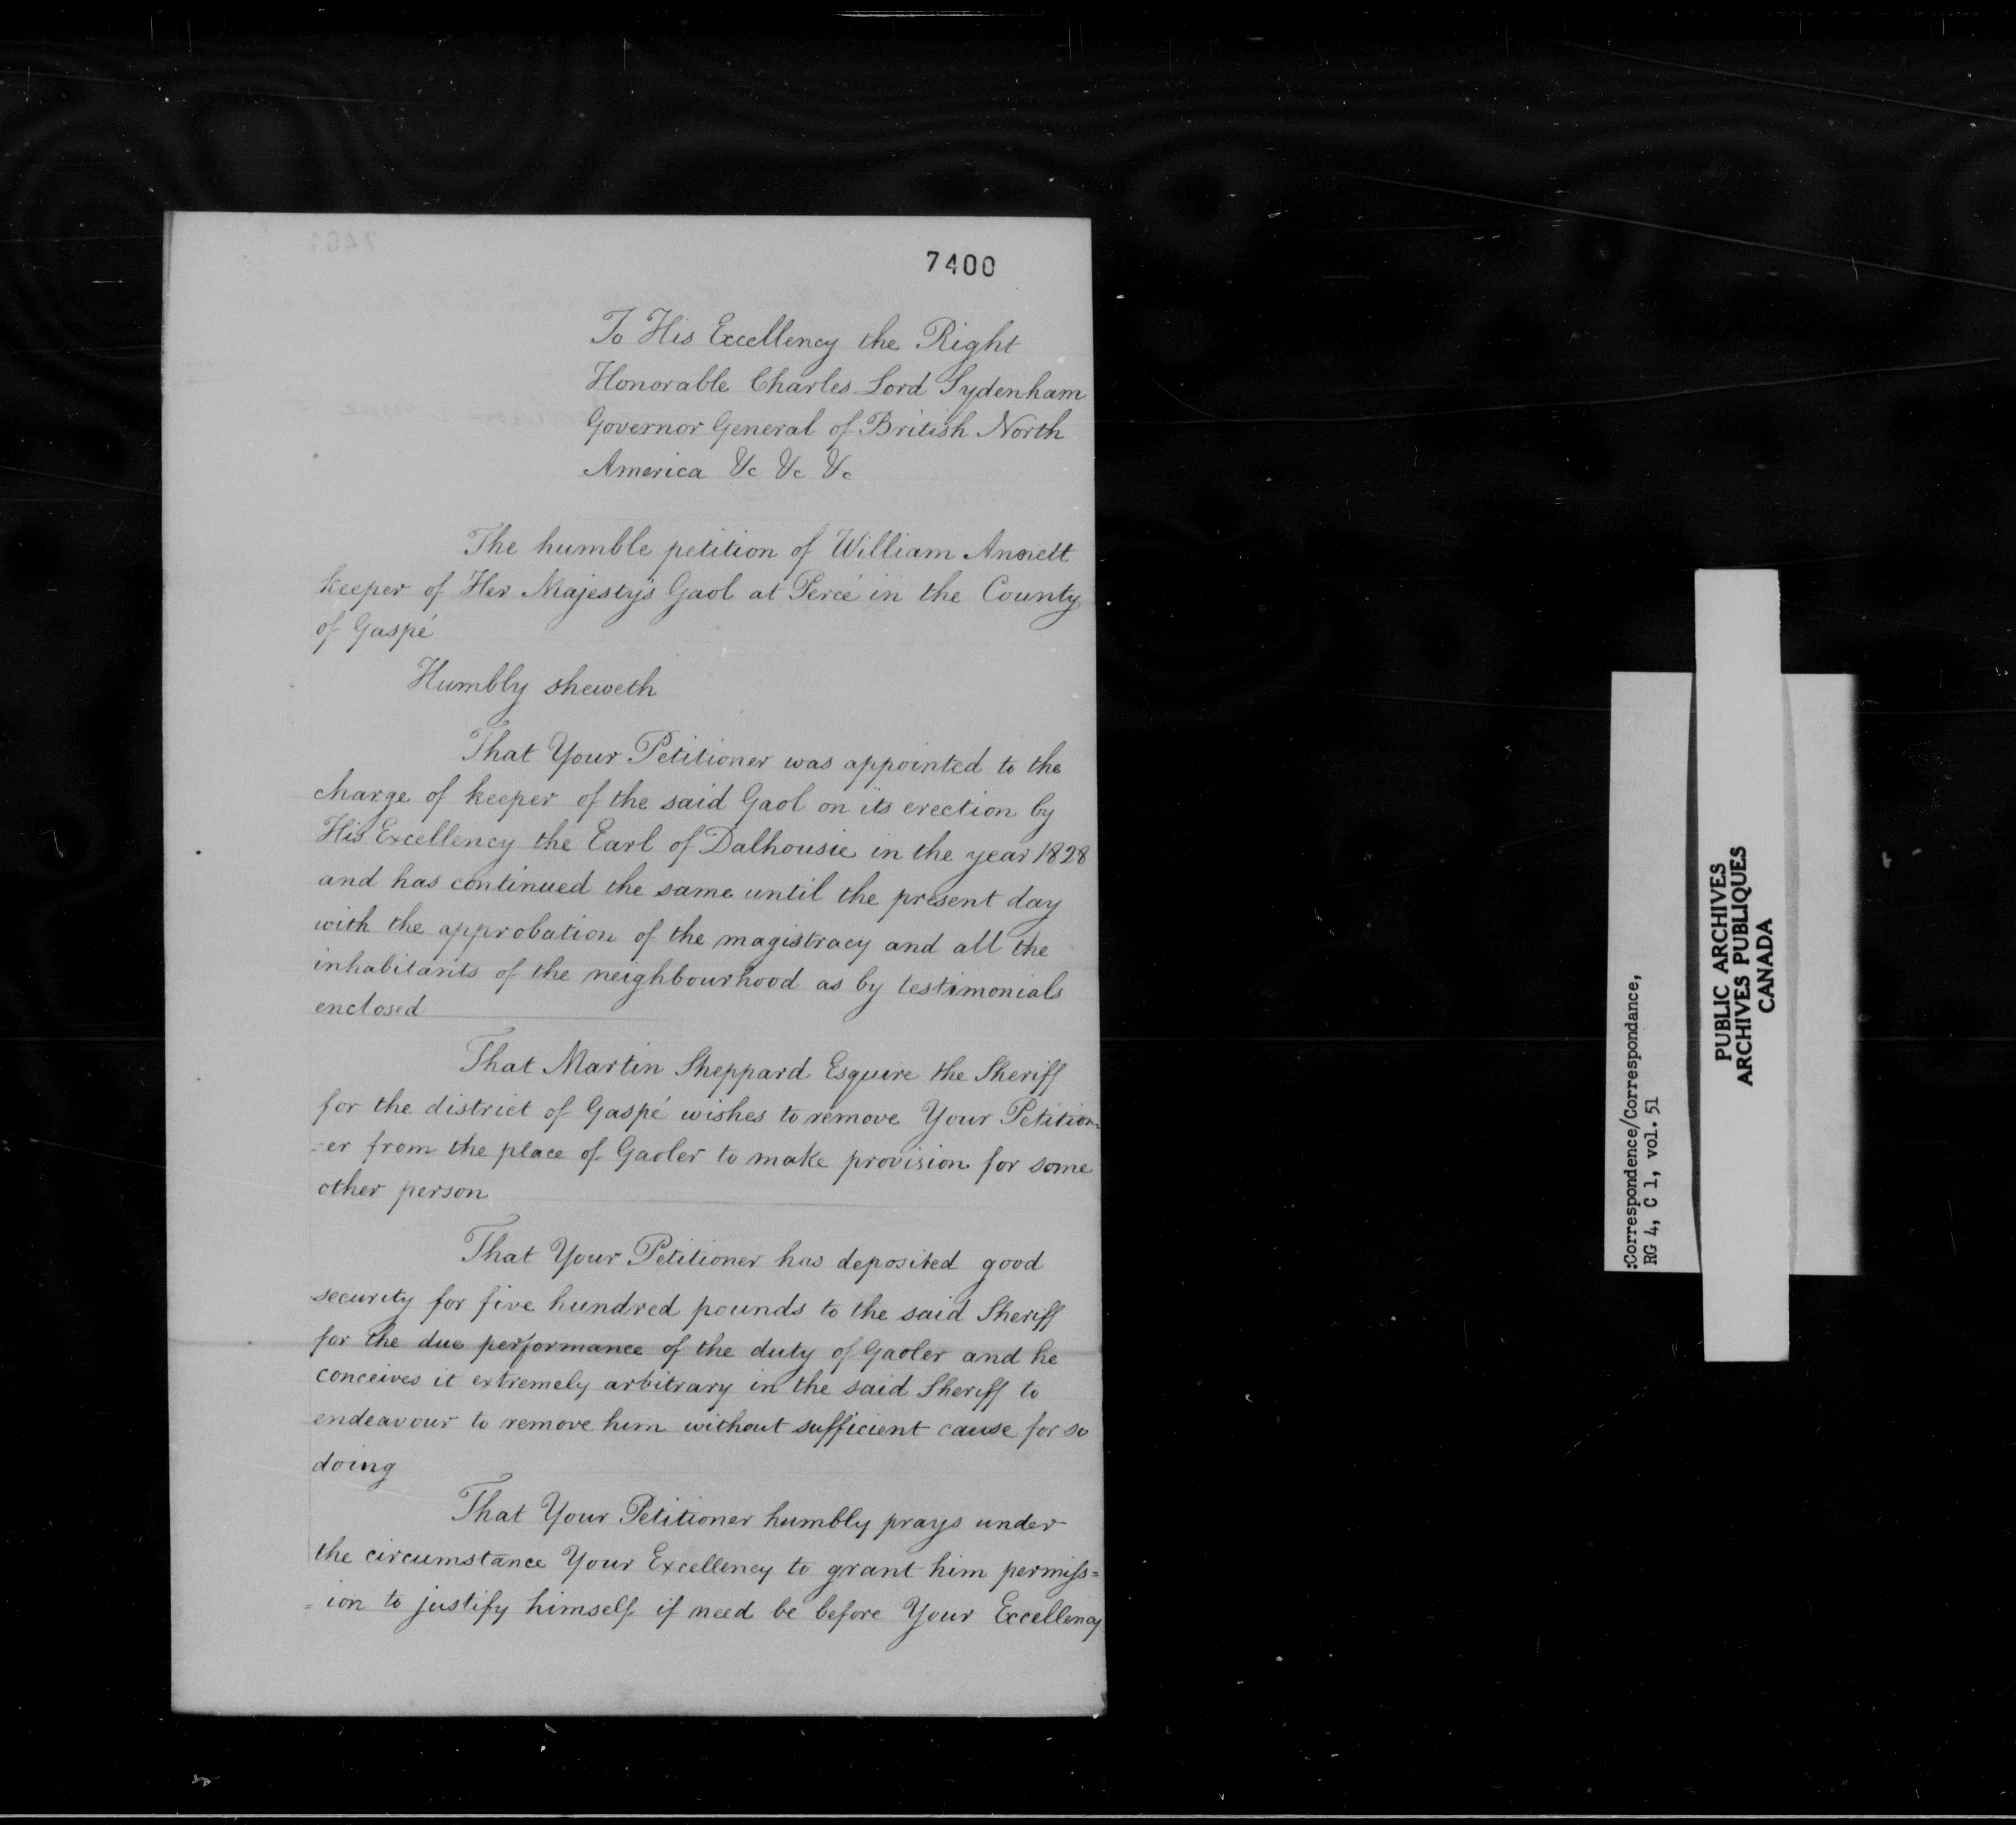 7400
To His Excellency the Right
Honorable Charles Lord Sydenham
Governor General of British North
America &c &c &c
The humble petition of William Annett
keeper of Her Majesty's Gaol at Percé in the County
of Gaspé
Humbly sheweth
That Your Petitioner was appointed to the
charge of keeper of the said Gaol on its erection by
His Excellency the Earl of Dalhousie in the year 1828
and has continued the same until the present day
with the approbation of the magistracy and all the
inhabitants of the neighbourhood as by testimonials
enclosed
That Martin Sheppard Esquire the Sheriff
for the district of Gaspé wishes to remove Your Petition=
=er from the place of Gaoler to make provision for some
other person
That Your Petitioner has deposited good
security for five hundred pounds to the said Sheriff
for the due performance of the duty of Gaoler and he
conceives it extremely arbitrary in the said Sheriff to
endeavour to remove him without sufficient cause for so
doing
That Your Petitioner humbly prays under
the circumstance Your Excellency to grant him permiss=
=ion to justify himself if need be before Your Excellency
:Correspondence/Correspondance,
RG 4, C 1, vol. 51
PUBLIC ARCHIVES
ARCHIVES PUBLIQUES
CANADA